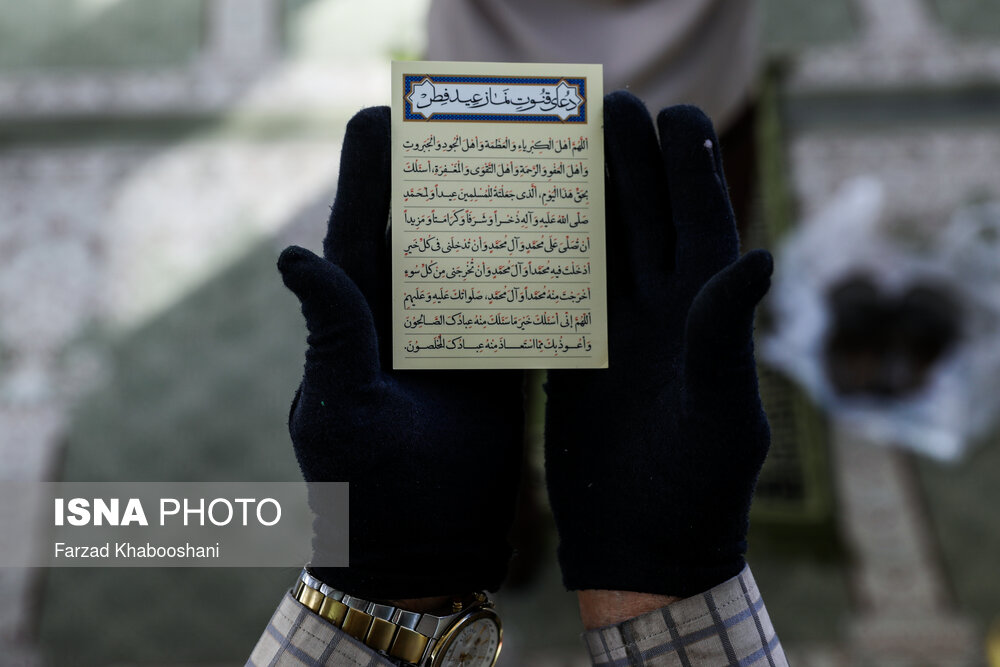 دُعای قُنوتِ نَماز عید فِطر
اَللّهُمَّ اَهْلَ الْکِبْرِیاءِ وَ الْعَظَمَةِ وَ اَهْلَ الْجُودِ وَ الْجَبَرُوتِ
وَ اَهْلَ الْعَفْوِ وَ الرَّحْمَةِ وَ اَهْلَ التَّقْوی وَ الْمَغْفِرَةِ، اَسْئَلُکَ
بِحَقِّ هذَا الْیَوْمِ، اَلَّذی جَعَلْتَهُ لِلْمُسْلِمینَ عیداً وَ لِمُحَمَّدٍ
صَلَّی اللهُ عَلَیْهِ وَ آلِهِ ذُخْراً وَ شَرَفاً وَ کَرامَتاً وَ مَزیداً
اَنْ تُصَلِّیَ عَلی مُحَمَّدٍ وَ آلِ مُحَمَّدٍ وَ اَنْ تُدْخِلَنی فی کُلِّ خَیْرٍ
اَدْخَلْتَ فیهِ مُحَمَّداً وَ آلَ مُحَمَّدٍ وَ اَنْ تُخْرِجَنی مِنْ کُلِّ سُوءٍ
اَخْرَجْتَ مِنْهُ مُحَمَّداً وَ آلَ مُحَمَّدٍ، صَلَواتُکَ عَلَیْهِ وَ عَلَیْهِمْ
اَللّهُمَّ اِنّی اَسْئَلُکَ خَیْرَ ما سَئَلَکَ مِنْهُ عِبادُکَ الصّالِحُونَ
وَ اَعُوذُ بِکَ مِمَّا اسْتَعاذَ مِنْهُ عِبادُکَ الْمُخْلَصُونَ.
ISNA PHOTO
Farzad Khabooshani